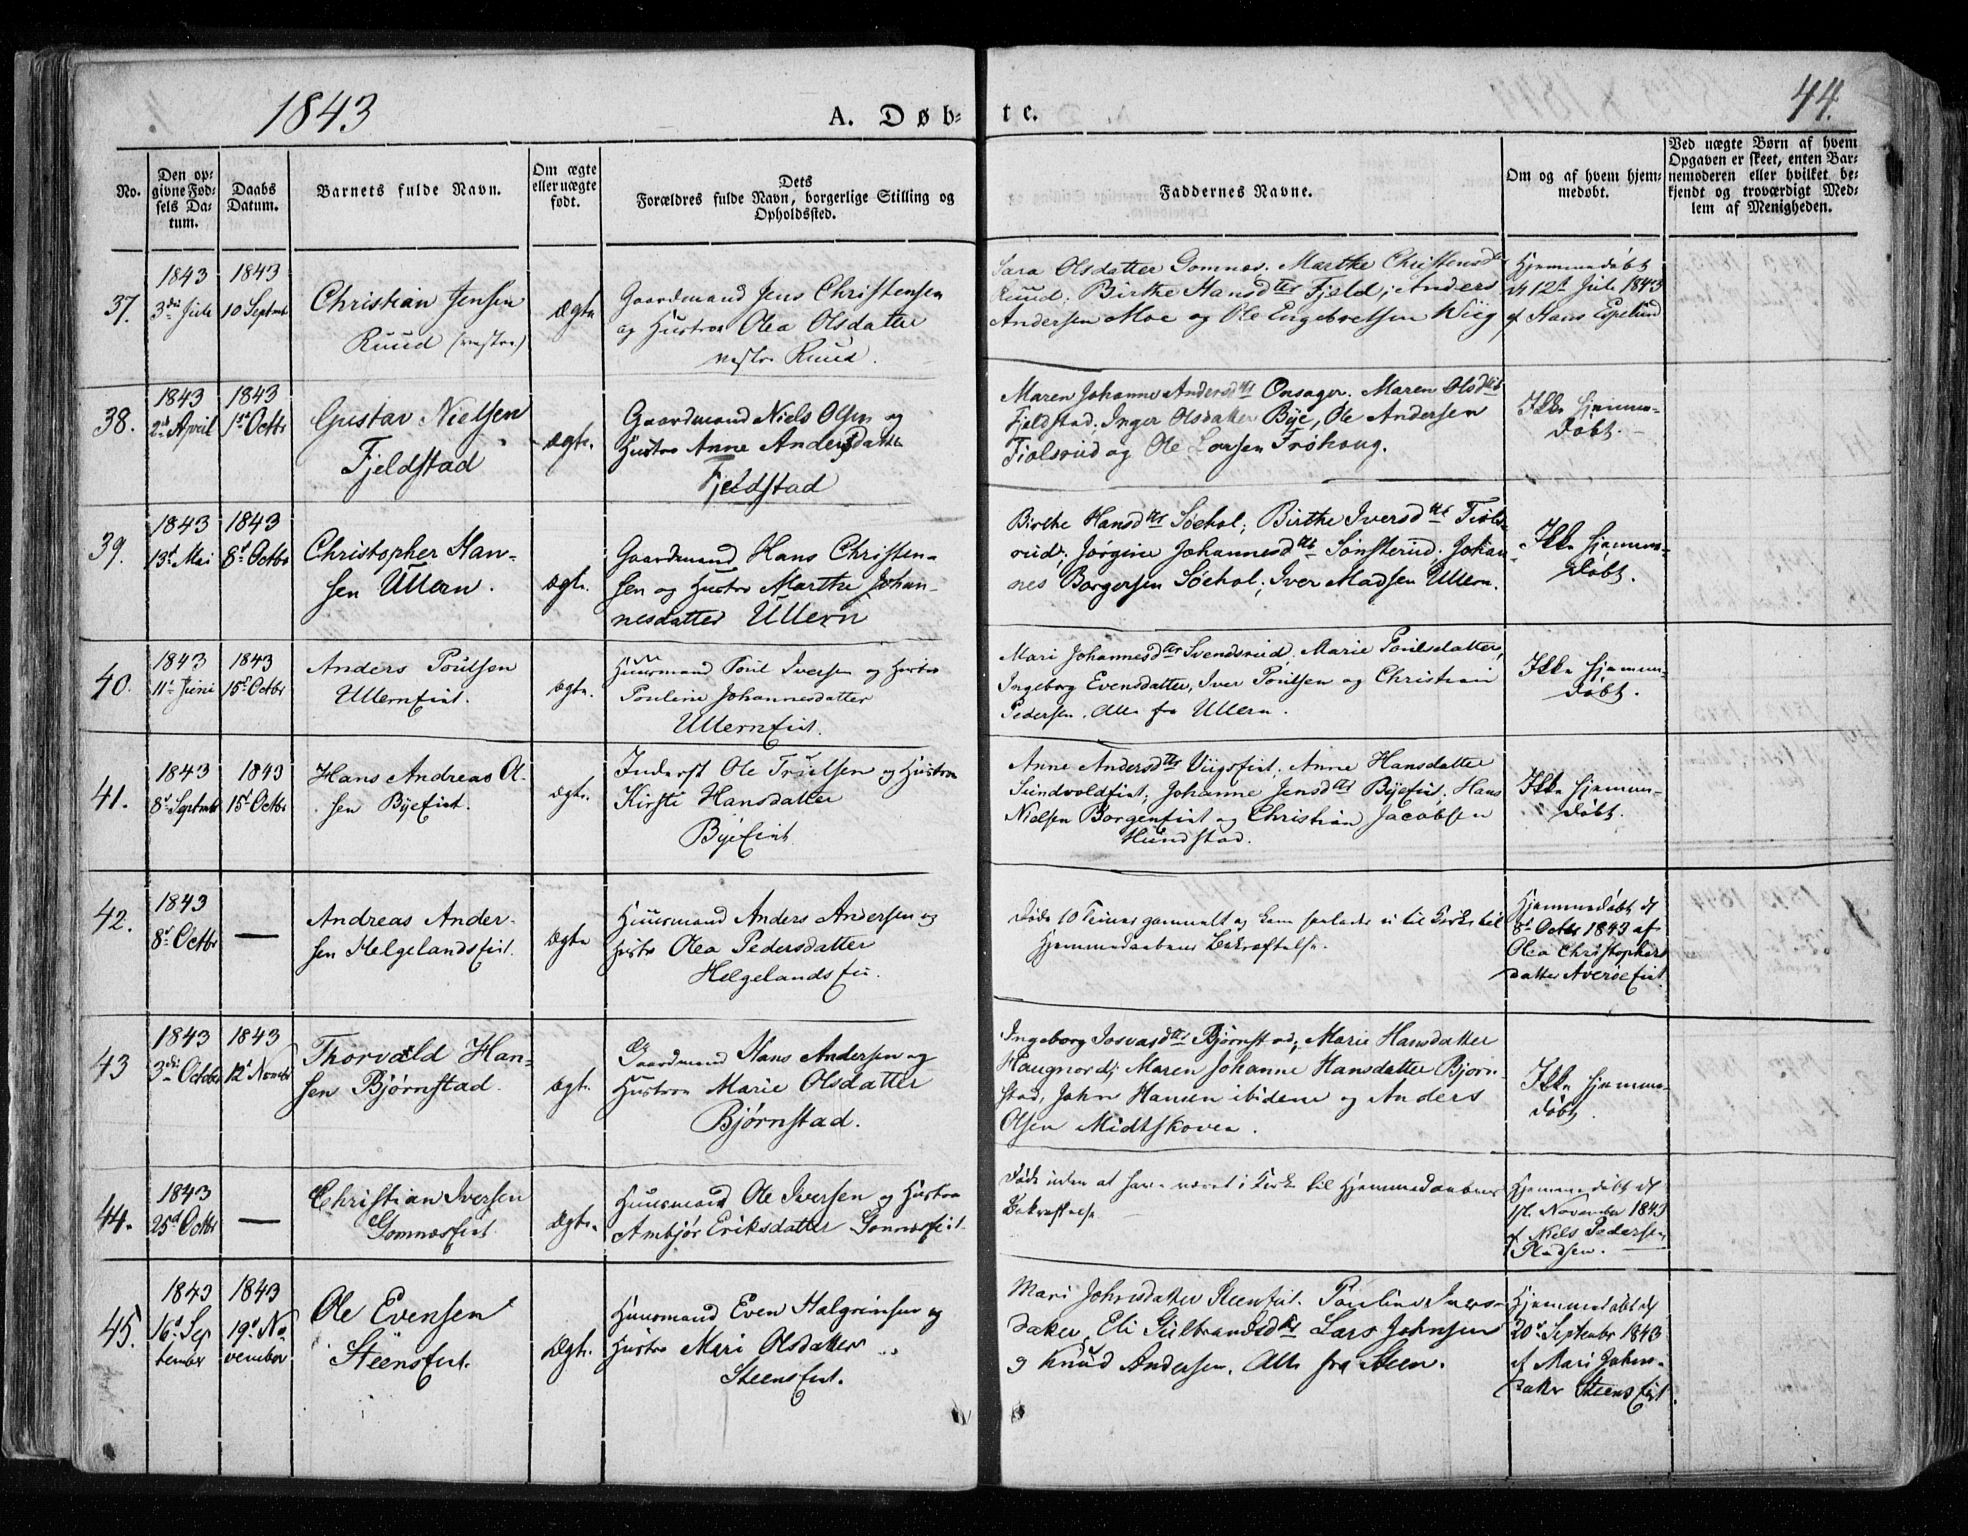 1843
A. Døb-
te.
44.
No.
Den op-
givne Fød-
sels Da-
tum.
Daabs
Datum.
Barnets fulde Navn.
Om ægte
eller uægte
født.
Dets
Forældres fulde Navn, borgerlige Stilling og
Opholdssted.
Faddernes Navne.
Om og af hvem hjem-
medøbt.
Ved uægte Børn af hvem
Opgaven er skeet, enten Bar-
nemoderen eller hvilket be-
kjendt og troværdigt Med-
lem af Menigheden.
37.
1843
3die Juli
1843
10 Septembr
Christian Jensen
Ruud (vestre)
Ægte
Gaardmand Jens Christensen
og Hustroe Olea Olsdatter
vestre Ruud.
Sara Olsdatter Gomnæs. Marthe Christensd
Ruud; Birthe Hansdtr Fjeld; Anders
Andersen Moe og Ole Engebretsen Wiig
Hjemmedøbt
d 12te Juli 1843
af Hans Espelund
38.
1843
2d April
1843
1st Octbr
Gustav Nielsen
Fjeldstad
Ægte.
Gaardmand Niels Olsen og
Hustro Anne Andersdatter
Fjeldstad
Maren Johanne Andersdtr Onsager. Maren Olsdtr
Fjeldstad. Inger Olsdatter Bye, Ole Andersen
Fiolsrud og Ole Larsen Frøhoug.
Ikke hjemme-
døbt.
39.
1843
13d Mai
1843
8d Octbr
Christopher Han-
sen Ullern.
Ægte.
Gaardmand Hans Christen-
sen og Hustro Marthe Johan-
nesdatter Ullern
Birthe Hansdtr Søehol; Birthe Iversdtr Fiols-
rud; Jørgine Johannesdtr Sønsterud. Johan-
nes Borgersen Søehol; Iver Madsen Ullern.
Ikke hjemme-
døbt.
40.
1843
11t Juni
1843
15d Octbr
Anders Poulsen
Ullernseie.
Ægte.
Huusmand Poul Iversen og Hustro
Pouline Johannesdatter
Ullernseiet.
Mari Johannesdtr Svendsrud, Marie Poulsdatter,
Ingeborg Evensdatter, Iver Poulsen og Christian
Pedersen. Alle fra Ullern.
Ikke hjemme-
døbt.
41.
1843
8d Septembr
1843
15d Octbr
Hans Andreas Ol-
sen Byeeiet.
Ægte.
Inderst Ole Truelsen og Hustro
Kirsti Hansdatter
Byeeiet
Anne Andersdtr Viigseiet. Anne Hansdatter
Sundvoldeiet; Johanne Jensdtr Byeeiet. Hans
Nielsen Borgeneiet og Christian Jacobsen
Hundstad.
Ikke hjemme-
døbt.
42.
1843
8d Octbr
—
Andreas Ander-
sen Helgelandseiet.
Ægte
Huusmand Anders Andersen og
Hustro Olea Pedersdatter
Helgelandsei.
Døde 10 Timer gammelt og kom saaledes ei til Kirke til
Hjemmedaabens Bekræftelse.
Hjemmedøbt d
8d Octbr 1843 af
Olea Christophers
datter Averøeeiet.
43
1843
3die October
1843
12t Novembr
Thorvald Han-
sen Bjørnstad.
Ægte.
Gaardmand Hans Andersen og
Hustroe Marie Olsdatter
Bjørnstad.
Ingeborg Josvasdtr Bjørnstad; Marie Hansdatter
Haugnord; Maren Johanne Hansdatter Bjørn-
stad, John Hansen ibidem og Anders
Olsen Midtskoven.
Ikke hjemme-
døbt
44.
1843
25d Octbr
—
Christian Iversen
Gomnæseiet
Ægte.
Huusmand Ole Iversen og Hustroe
Ambjør Eriksdatter Gomnæseiet
Døde inden at have været i Kirke til Hjemmedaabens
Bekræftelse
Hjemmedøbt d
1st November 1843
af Niels Pedersen
Pladsen.
45.
1843
16d Sep
tember
1843
19d No
vember
Ole Evensen
Steenseiet.
Ægte.
Huusmand Even Halgrimsen og
Hustro Mari Olsdatter
Steenseiet.
Mari Johnsdatter Steenseiet. Pauline Ivers-
datter, Eli Gulbrandsdtr Lars Johnsen
og Knud Andersen. Alle fra Steen.
Hjemmedøbt d
20d September 1843
af Mari Johns-
datter Steenseiet.